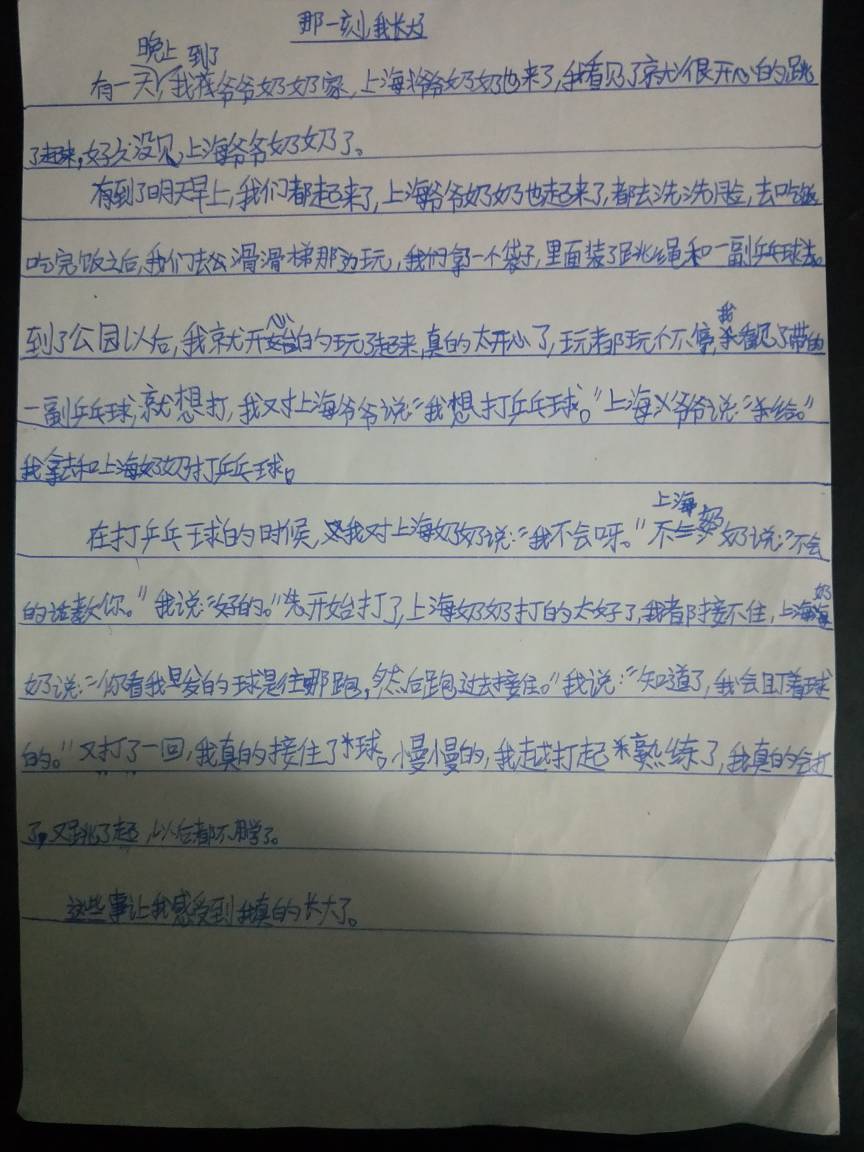 那一刻,我长大了
有一天晚上,我到了爷爷奶奶家,上海爷爷奶奶也来了,我看见了就很开心的跳
了起来,好久没见,上海爷爷奶奶了。
有到了明天早上,我们都起来了,上海爷爷奶奶也起来了,都去洗洗脸,去吃饭
吃完饭之后,我们去公滑滑梯那边玩,我们拿一个袋子,里面装了跳绳和一副乒乓球去。
到了公园以后,我就开心的玩了起来,真的太开心了,玩都玩个不停,我看见了带的
一副乒乓球,就想打,我又对上海爷爷说:“我想打乒乓球。”上海爷爷说:“给。”
我拿去和上海奶奶打乒乓球。
在打乒乓球的时候,我对上海奶奶说:“我不会呀。”上海奶奶说:“不会
的话教你。”我说:“好的。”先开始打了,上海奶奶打的太好了,我都接不住,上海奶
奶说:“你看我发的球是往哪跑,然后跑过去接住。”我说:“知道了,我会盯着球
的。”又打了一回,我真的接住了球。慢慢的,我越打起熟练了,我真的会打
了,又跳了起,以后都不用学了。
这些事让我感受到我真的长大了。